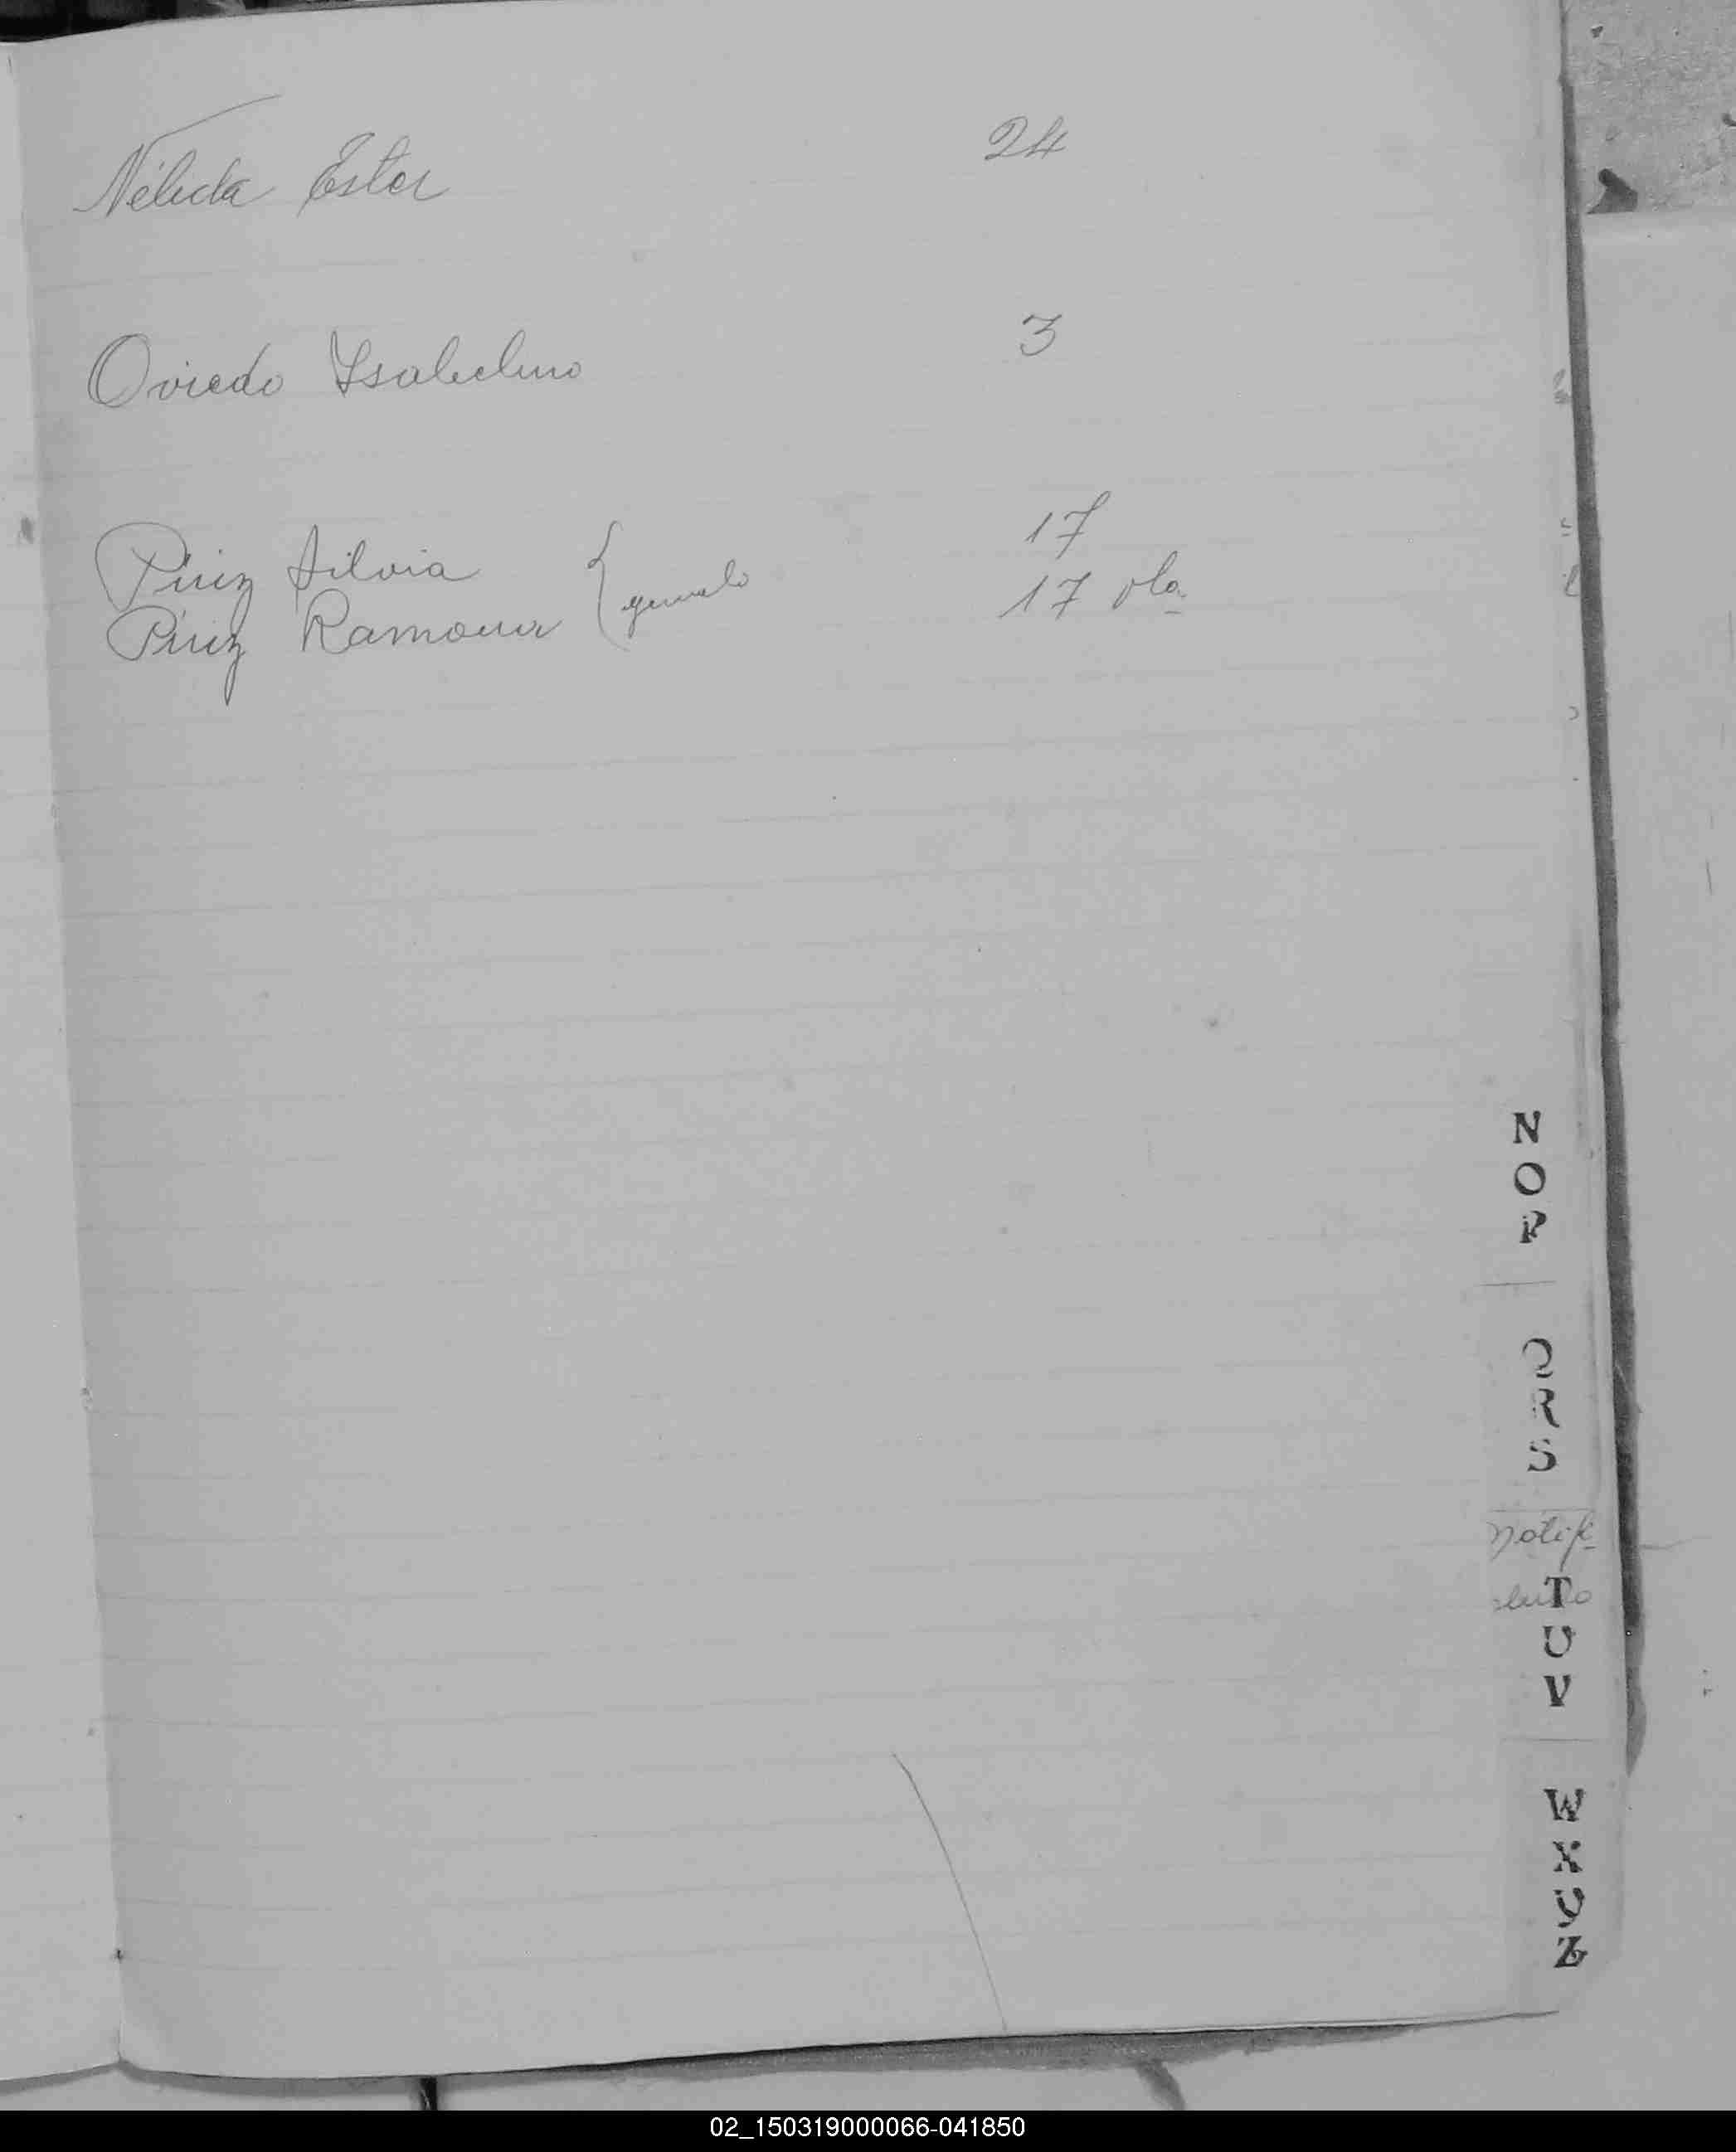 Nélida Ester 24
Oviedo Ysabelino 3
Piriz Silvia 17
Piriz Ramona { gemelo 17 vta.
N
O
P
Q
R
S
Notifi
T
U
V
W
X
Y
Z
02_150319000066-041850